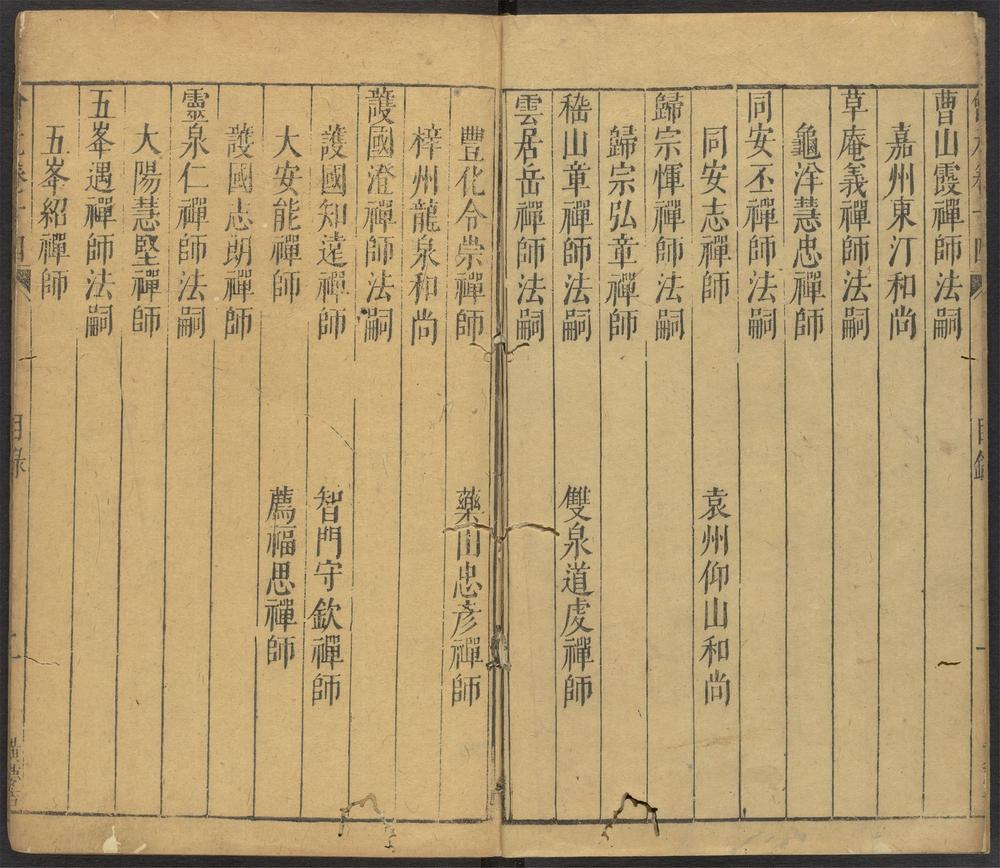 曹山霞禪師法嗣
嘉州東汀和尚
草庵義禪師法嗣
龜洋慧忠禪師
同安丕禪師法嗣
同安志禪師 袁州仰山和尚
歸宗惲禪師法嗣
歸宗弘章禪師
嵇山章禪師法嗣 雙泉道虔禪師
雲居岳禪師法嗣
豐化令崇禪師 藥山忠彥禪師
梓州龍泉和尚
護國澄禪師法嗣
護國知遠禪師 智門守欽禪師
大安能禪師 薦福思禪師
護國志朗禪師
靈泉仁禪師法嗣
大陽慧堅禪師
五峯遇禪師法嗣
五峯紹禪師
目錄